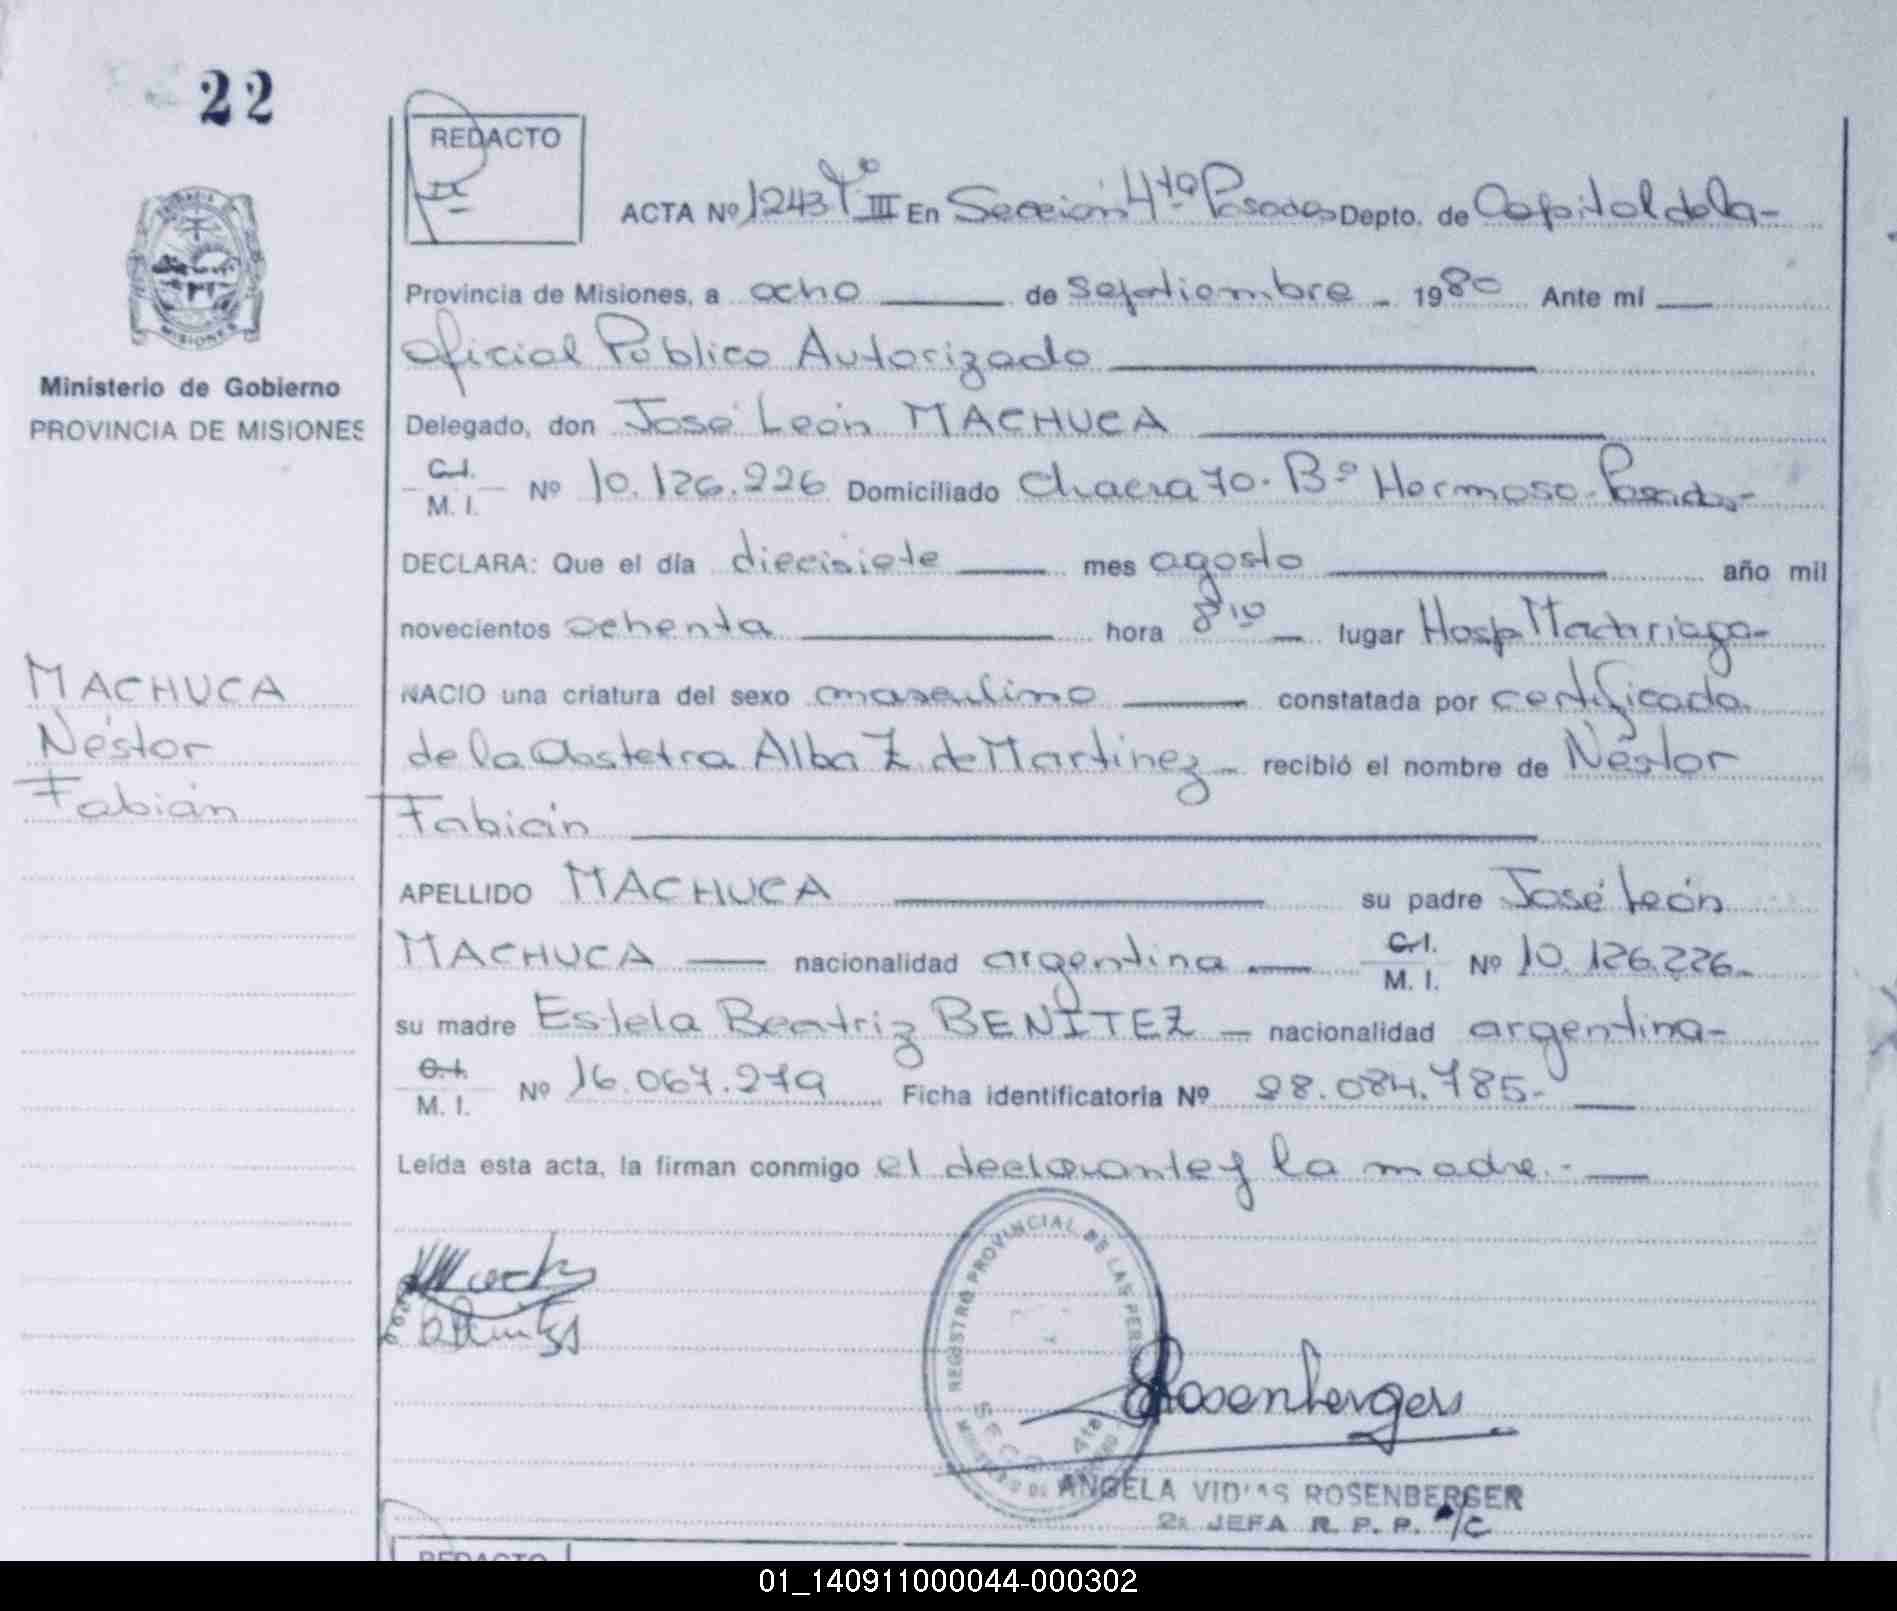 22
REDACTO
ACTA Nº 1243 Tº III En Sección 4ta Posadas Depto. de Capital de la-
Provincia de Misiones, a ocho de septiembre - 1980 Ante mí
Oficial Público Autorizado
Ministerio de Gobierno
PROVINCIA DE MISIONES
Delegado, don José León MACHUCA
C.I.
M. I. Nº 10.126.226 Domiciliado Chacra 70. Bº Hermoso. Posadas-
DECLARA: Que el día diecisiete mes agosto año mil
novecientos ochenta hora 8,10 lugar Hosp Madariaga-
MACHUCA
Néstor
Fabián
NACIO una criatura del sexo masculino constatada por certificado
de la Obstetra Alba Z. de Martinez - recibió el nombre de Néstor
Fabián
APELLIDO MACHUCA su padre José León
MACHUCA nacionalidad argentina C.I.
M. I. Nº 10.126.226.
su madre Estela Beatriz BENÍTEZ - nacionalidad argentina-
C.I.
M. I. Nº 16.067.279 Ficha identificatoria Nº 28.084.785.-
Leída esta acta, la firman conmigo el declarante y la madre.-
REGISTRO PROVINCIAL DE LAS PERS
SECC 4ta
Rosenberger
ANGELA ROSENBERGER
2a JEFA R. P. P. A/C
REDACTO
01_140911000044-000302